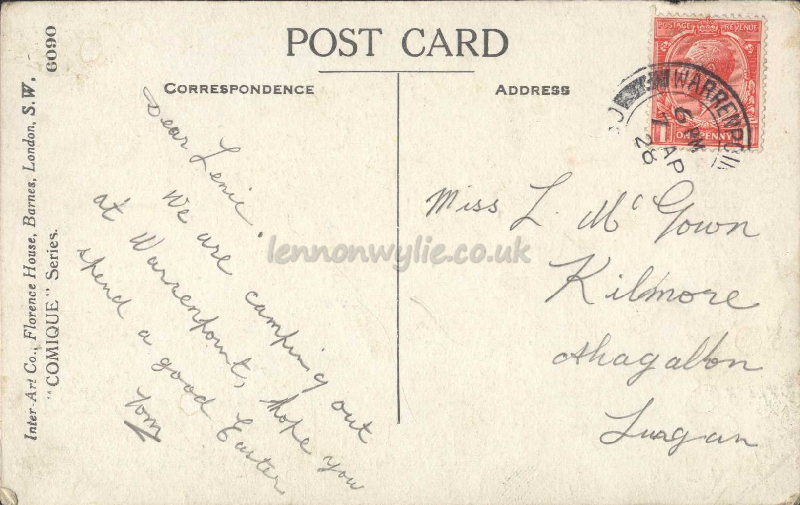 POST CARD
CORRESPONDENCE
ADDRESS
Dear Lenie.
We are camping out
at Warrenpoint, hope you
spend a good Easter
Tom
Miss L. McGown
Kilmore
Ahagallon
Lurgan
POSTAGE REVENUE
1 ONE PENNY 1
WARRENPOIN
6 PM
7 AP
28
Inter-Art Co., Florence House, Barnes, London, S.W.
"COMIQUE" Series.
6090
lennonwylie.co.uk